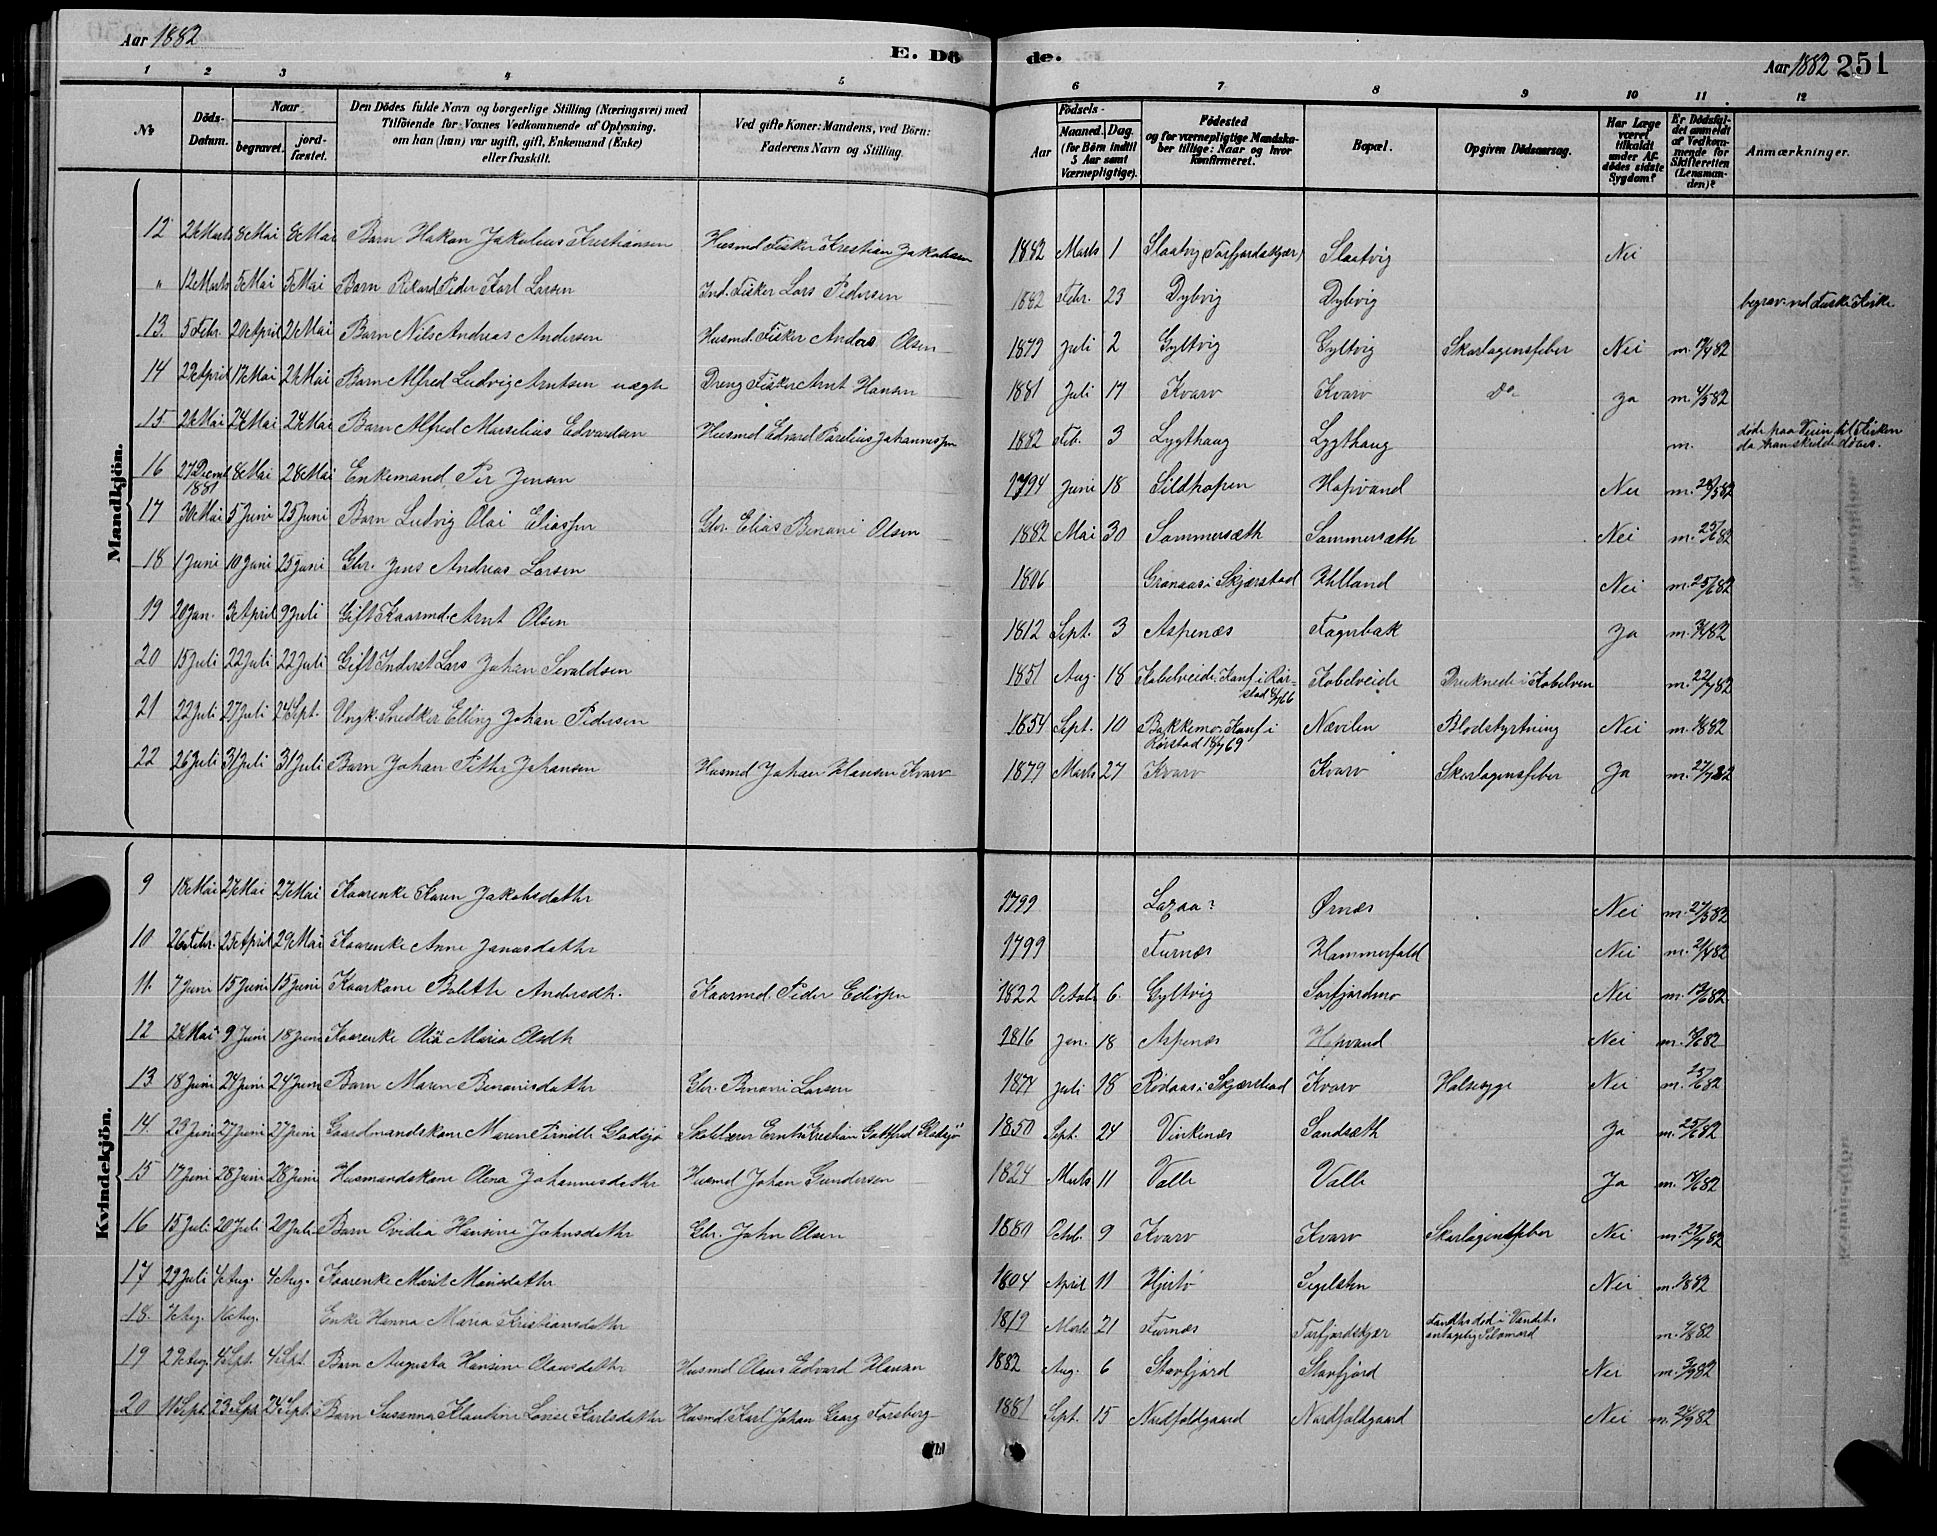 Aar 1882
E. Dö de.
Aar 1882 251
1 2 3 4 5 6 7 8 9 10 11 12
No
Döds-Datum.
Naar
begravet.
jord-fæstet.
Den Dödes fulde Navn og borgerlige Stilling (Næringsvei) med Tilföiende for Voxnes Vedkommende af Oplysning, om han (hun) var ugift, gift, Enkemand (Enke) eller fraskilt.
Ved gifte Koner: Mandens, ved Börn: Faderens Navn og Stilling.
Födsels-
Aar
Maaned. Dag.
(for Börn indtil 5 Aar samt Værnepligtige).
Födested og for værnepligtige Mandskaber tillige: Naar og hvor Konfirmeret.
Bopæl.
Opgiven Dödsaarsag.
Har Læge været tilkaldt under Afdödes sidste Sygdom?
Er Dödsfaldet anmeldt af Vedkommende for Skifteretten (Lensmanden)?
Anmærkninger.
Mandkjön.
12 8 Mai 8 Mai Barn Hakon Jakulius Kristiansen Husmd Fisker Kristian Jakobsen 1882 Marts 1 Slaatvig Slaatvig Nei
" 12 Marts 5 Mai 5 Mai Barn Rikard Peder Karl Larsen Ind. Fisker Lars Pedersen 1882 Febr. 23 Dybvig Dybvig
13. 5 Febr. 20 April 21 Mai Barn Nils Andreas Andersen Husmd. Fisker Anders Olsen 1879 Juli 2 Gyltvig Gyltvig Skarlagensfeber Nei
14 29 April 17 Mai 21 Mai Barn Alfred Ludvig Arntsen uægte Dreng Fisker Arnt Hansen 1881 Juli 17 Kvarv Kvarv Do Ja m. 4/5 82
15 24 Mai 24 Mai Barn Alfred Marselius Edvardsen Husmd Edvard Parelius Johannesen 1882 Feb. 3 Lygthaug Lygthaug m. døde paa Veien til Kirken da han skulde døbes.
16 27 Decemb 1881 8 Mai 28 Mai Enkemand Per Jensen 1794 Juni 18 Sildhopen Hopvand Nei m. 28/5 82
17 30 Mai 5 Juni 25 Juni Barn Ludvig Olai Eliassen Gbr. Elias Benoni Olsen 1882 Mai 30 Sommersæth Sommersæth Nei m. 25/6 82
18 1 Juni 10 Juni 25 Juni Gbr. Jens Andreas Larsen 1806 Grønaas i Skjærstad Helland Nei m. 25/6 82
19 20 Jan. 3 April 9 Juli Gift Kaarmd. Arnt Olsen 1812 Sept. 3 Aspenæs Fagerbak Ja m. 3/4 82
20 15 Juli 22 Juli 22 Juli Gift Inderst Lars Johan Sevaldsen 1851 Aug. 18 Kobelveide. Konf i Rørstad Kobelveide Druknede i Kobelven m. 22/7 82
21 22 Juli 27 Juli 24 Sept. Ungk. Snedker Elling Johan Pedersen 1854 Sept. 10 Bakkemo. Konf i Rørstad Nævilen Blodstyrtning Nei
22 26 Juli 31 Juli 31 Juli Barn Johan Pether Johansen Husmd Johan Hansen Kvarv 1879 Marts 27 Kvarv Kvarv Skarlagensfeber Ja m. 27/7 82
Kvindekjön.
9 18 Mai 27 Mai 27 Mai Kaarenke Karen Jakobsdatter 1799 Ørnes Nei m. 27/5 82
10 26 Febr. 25 April 29 Mai Kaarenke Anne Jonasdatter 1799 Furnæs Hammerfald Nei m. 21/4 82
11. 7 Juni 15 Juni 15 Juni Kaarkone Bolette Andersdtr. Kaarmd. Peder 1822 Octob. 6. Gyltvig Sørfjordmo Nei
12 28 Mai 9 Juni 18 Juni Kaarenke Maria Olsdtr 1816 Jan. 18 Aspenæs Hopvand Nei
13 18 Juni 24 Juni 24 Juni Barn Maren Benonisdatter Gbr. Benoni Larsen Juli 18 Rødaas i Skjærstad Kvarv Halssyge Nei m. 25/6 82
14. 23 Juni 27 Juni 27 Juni Gaardmandskone Maren Pernille Gladsjø Skolelærer Ernts Kristian Gottfred Gladsjø 1850 Sept. 24 Vinkenæs Sandsæth Ja m. 25/6 82
15 17 Juni 28 Juni 28 Juni Husmandskone Olena Johannesdatter Husmd Johan Gundersen 1824 Marts 11 Valle Valle Ja
16 15 Juli 20 Juli 20 Juli Barn Ovidia Hansine Johnsdatter Gbr. John Olsen 1880 Octob. 9 Kvarv Kvarv Skarlagensfeber Nei m. 25/7 82
17 29 Juli 4 Aug. 4 Aug. Kaarenke Marit Monsdatter 1804 April 11 Hjertø Nei
18. Aug. 16 Aug. Enke Hanna Maria Kristiansdatter 1819 Marts 21 Furnæs Torfjordskjær Fandtes død i Vandet. antagelig Selvmord
19 29 Aug. 4 Sept. 4 Sept. Barn Augusta Hansine Olausdatter Husmd Olaus Edvard Hansen 1882 Aug. 6 Storfjord Storfjord Nei
20 11 Sept. 23 Sept. 24 Sept. Barn Susanna Klaudine Lovise Karlsdatter Husmd. Karl Johan Georg Forsberg 1881 Sept. 15 Nordfoldgaard Nordfoldgaard Nei m. 24/9 82